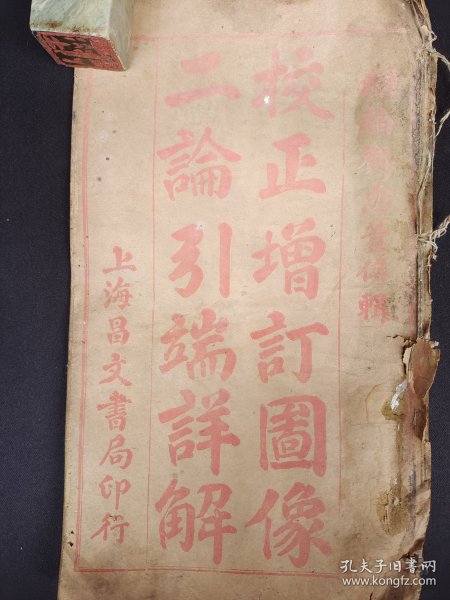 校正增訂圖像
二論引端詳解
上海昌文書局印行
孔夫子旧书网
www.kongfz.com